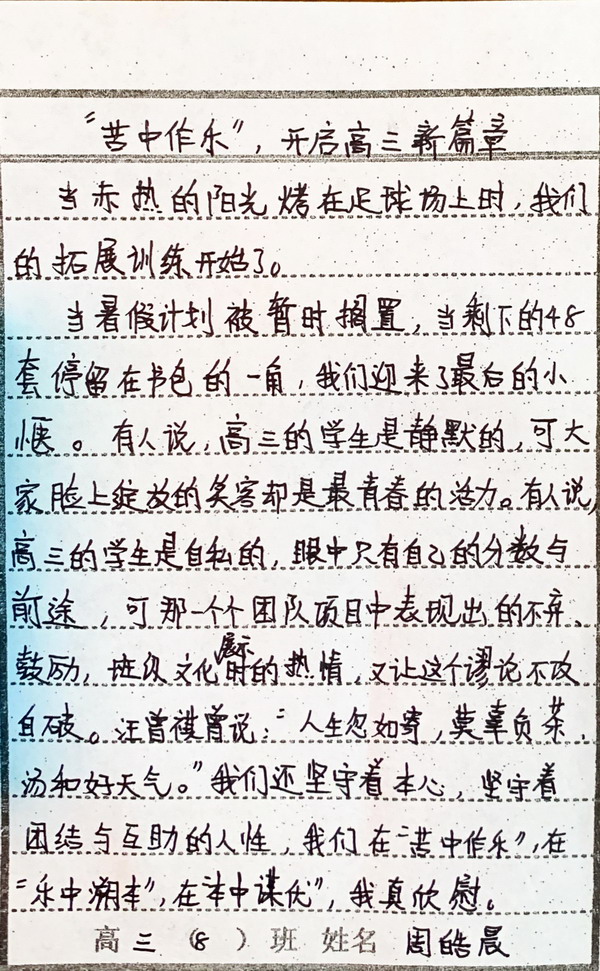 “苦中作乐”，开启高三新篇章
当赤热的阳光烤在足球场上时，我们
的拓展训练开始了。
当暑假计划被暂时搁置，当剩下的48
套停留在书包的一角，我们迎来了最后的小
惬。有人说，高三的学生是静默的，可大
家脸上绽放的笑容却是最青春的活力。有人说，
高三的学生是自私的，眼中只有自己的分数与
前途，可那一个个团队项目中表现出的不弃、
鼓励，班级文化展示时的热情，又让这个谬论不攻
自破。汪曾祺曾说：“人生忽如寄，莫辜负茶、
汤和好天气。”我们还坚守着本心，坚守着
团结与互助的人性，我们在“苦中作乐”，在
“乐中溯本”，在“本中谋优”，我真欣慰。
高三（8）班 姓名 周皓晨